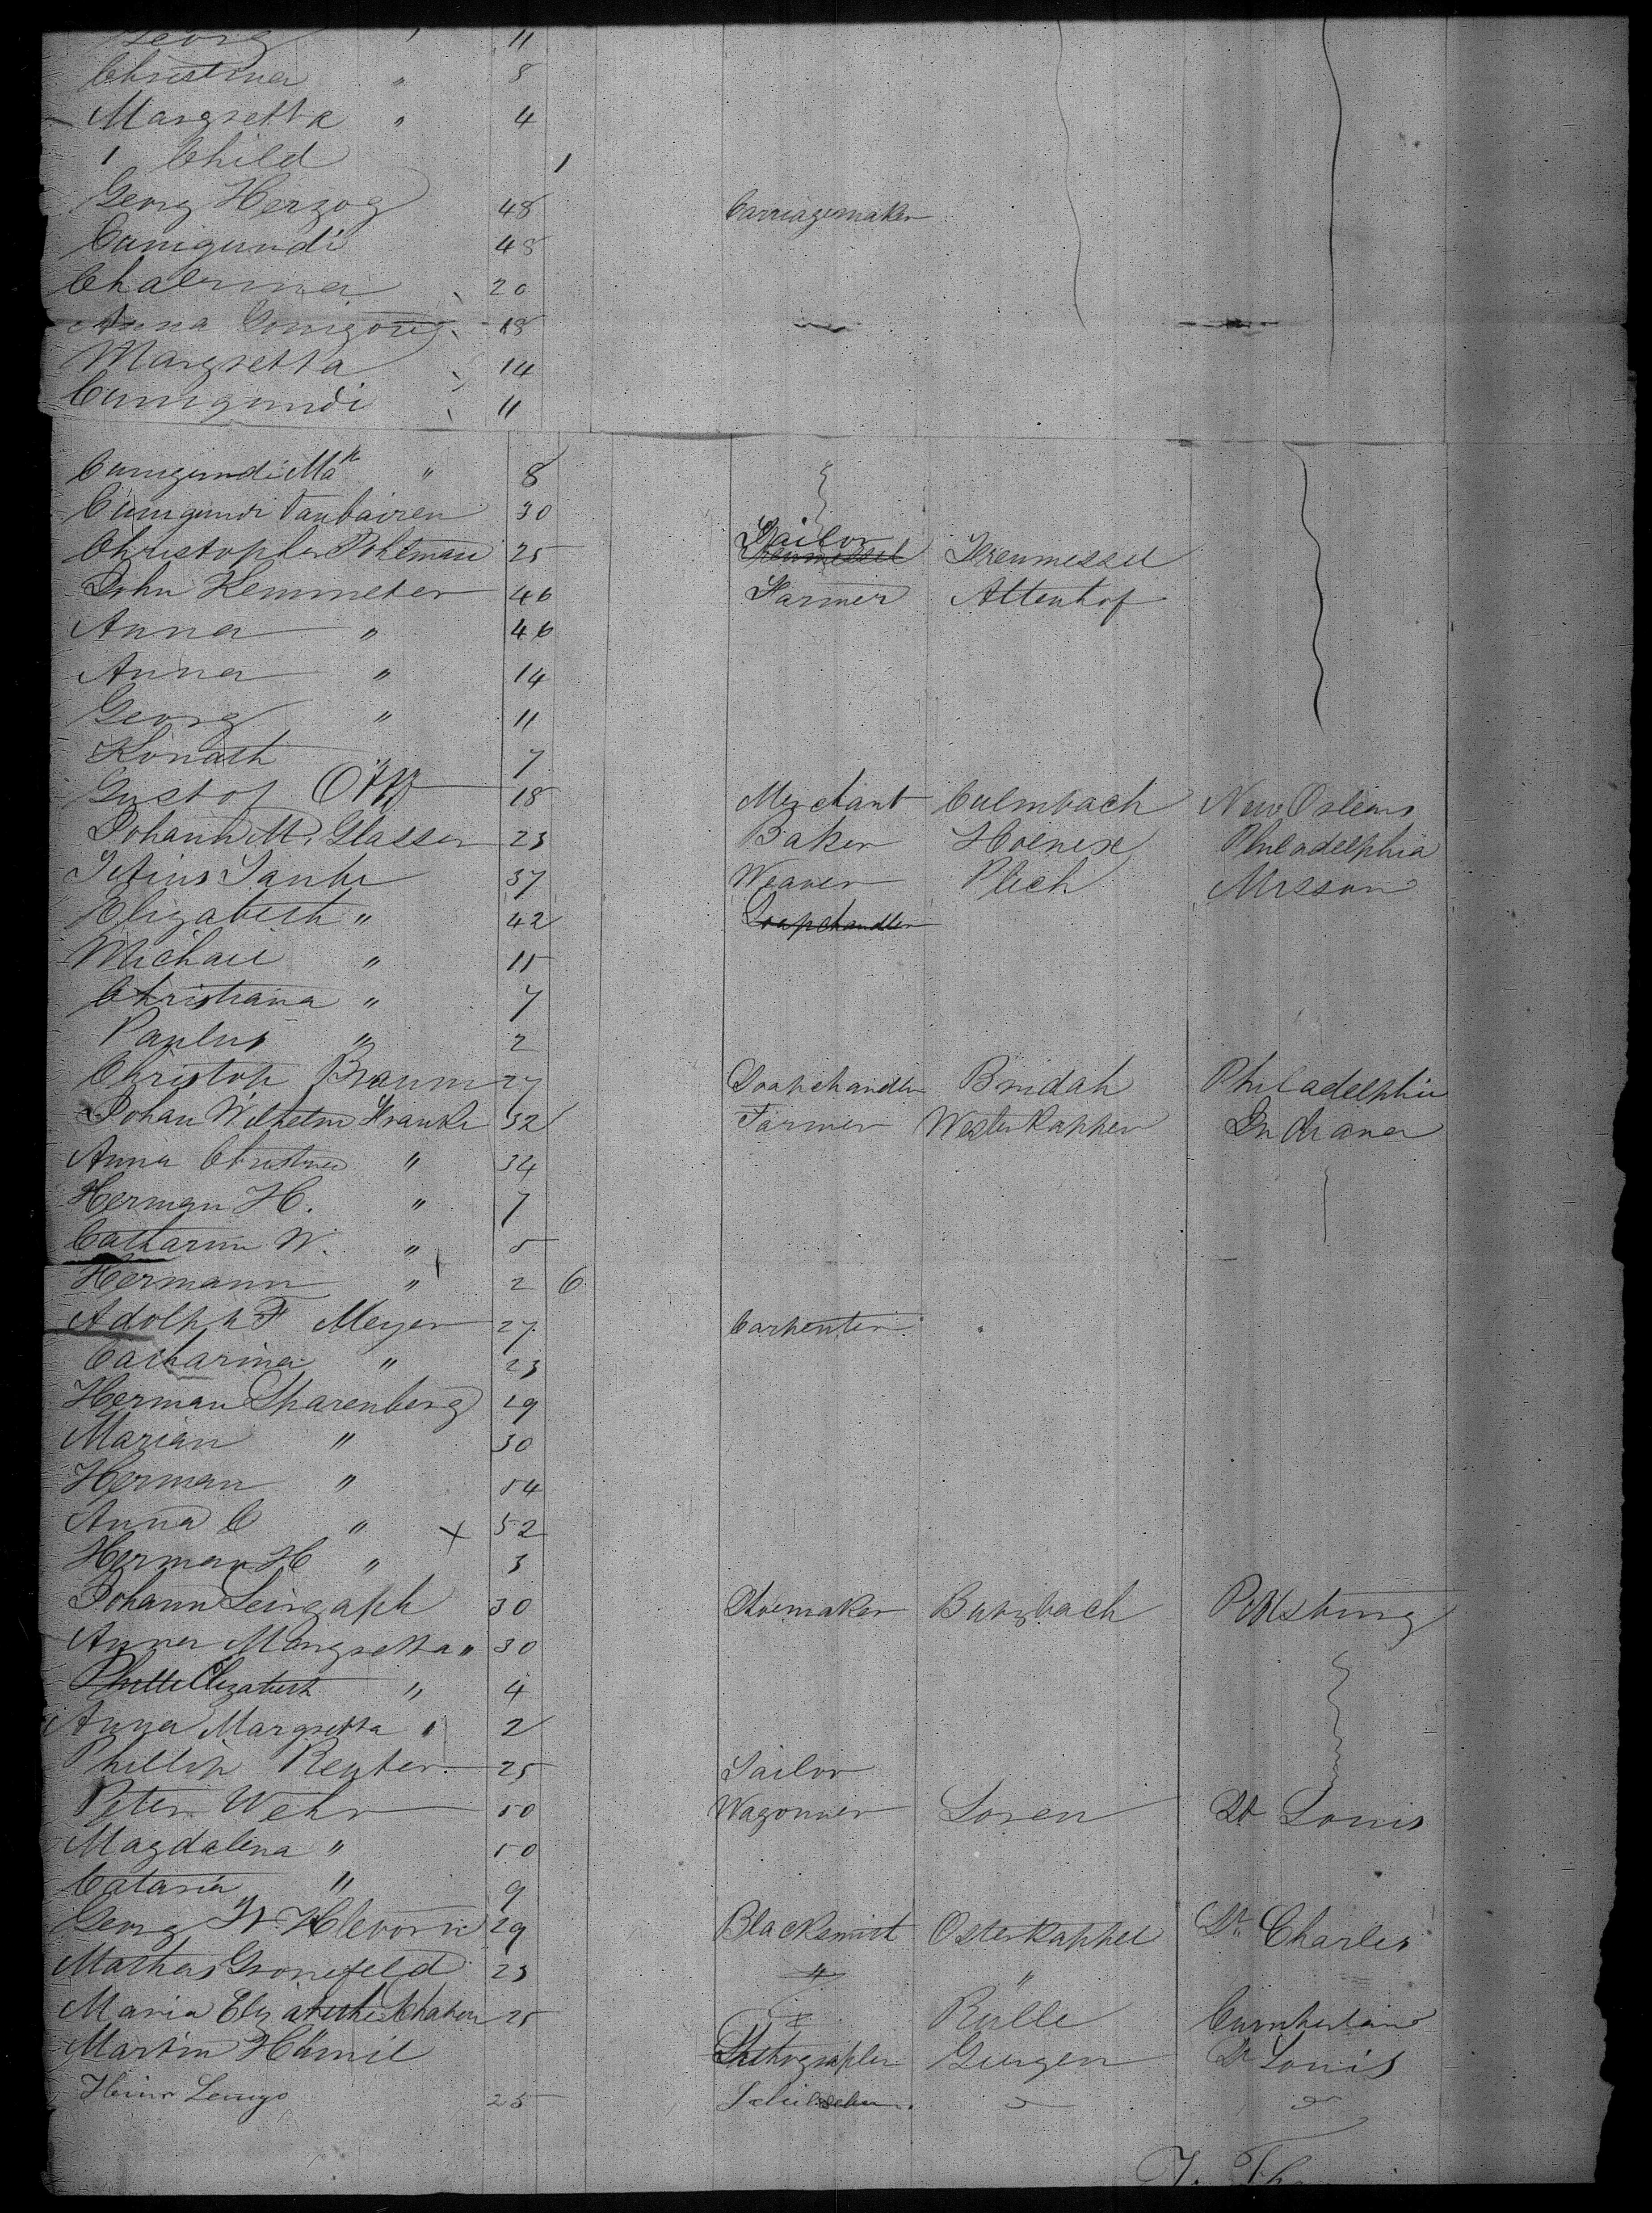 Georg " 11
Christina " 8
Margretta " 4
1 Child 1
Georg Herzog 48 Carriagemaker
Cunigundi 48
20
Anna 18
Margretta 14
Cunigundi 11
Cunigundi Ma " 8
Cunigundi 30
Christopher Pohlman 25 Tailor
John Hemmeter 46 Farmer Altenhof
Anna " 46
Anna " 14
Georg " 11
Konath " 7
Gustof Ott 18 Merchant Culmbach New Orleans
Johann M. Glasser 23 Baker Philadelphia
37 Weaver Plech Misson
Elizabeth " 42 Soapchandler
Michael " 11
Christiana " 7
Paulus " 2
Christoph Braum 27 Soapchandler Bindah Philadelphia
Johan Wilhelm Franke 32 Farmer Westerkappen Indiana
Anna Christina " 34
Herman H. " 7
Catharin W. " 5
Hermann " 2 6
Adolph F Meyer 27 Carpenter
Catharina " 23
Herman Sharenberg 29
Marian " 30
Herman " 54
Anna C " x 52
Herman H " 3
Johann 30 Shoemaker Butzbach Pittsburg
Anna Margretta " 30
Elizabeth " 4
Anna Margretta " 2
Phillip Reuter 25 Tailor
Peter Wehr 50 Wagonner Loren St Louis
Magdalena " 50
Cataria " 9
Georg W. Klevorn 29 Blacksmit Osterkappel St. Charles
Mathas Gronefeld 23 " "
Maria Elizabeth 25 " Rülle Cumberland
Martin Hümil Photographer Gurgen St Louis
Heinr Lemgo 25